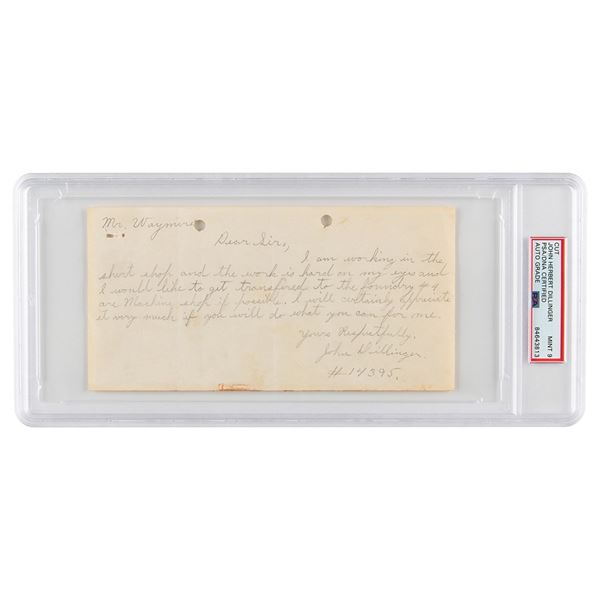 Mr. Waymire
Dear Sir,
I am working in the
shirt shop and the work is hard on my eyes and
I would like to get transfered to the foundry # 1
are Machine shop if possible. I will certainly appreciate
it very much if you will do what you can for me.
Yours Respectfully,
John Dillinger.
# 14395.
CUT
JOHN HERBERT DILLINGER MINT 9
PSA/DNA CERTIFIED
AUTO GRADE 84643813